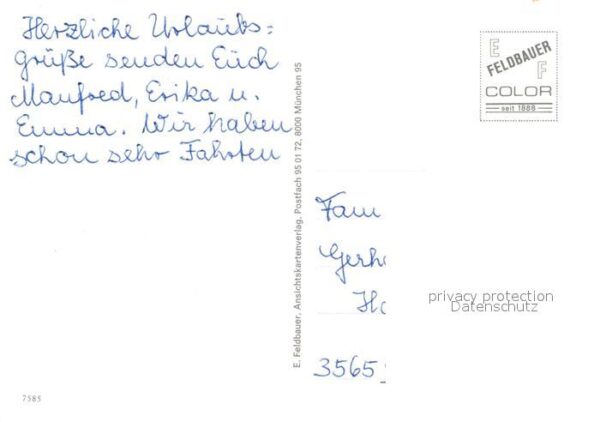 Herzliche Urlaubs=
grüße senden Euch
Manfred, Erika u.
Emma. Wir haben
schon sehr Fahrten
E. Feldbauer, Ansichtskartenverlag, Postfach 95 01 72, 8000 München 95
E F
FELDBAUER
COLOR
seit 1888
Fam
Gerh
Ha
3565
privacy protection
Datenschutz
7585